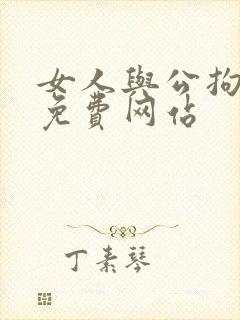 女人與公拘
免費网佔
丁素琴